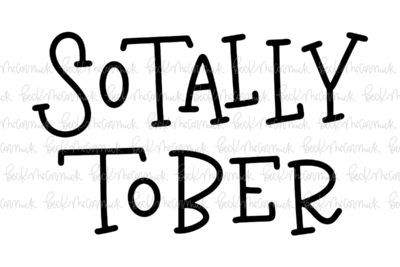 SOTALLY
TOBER